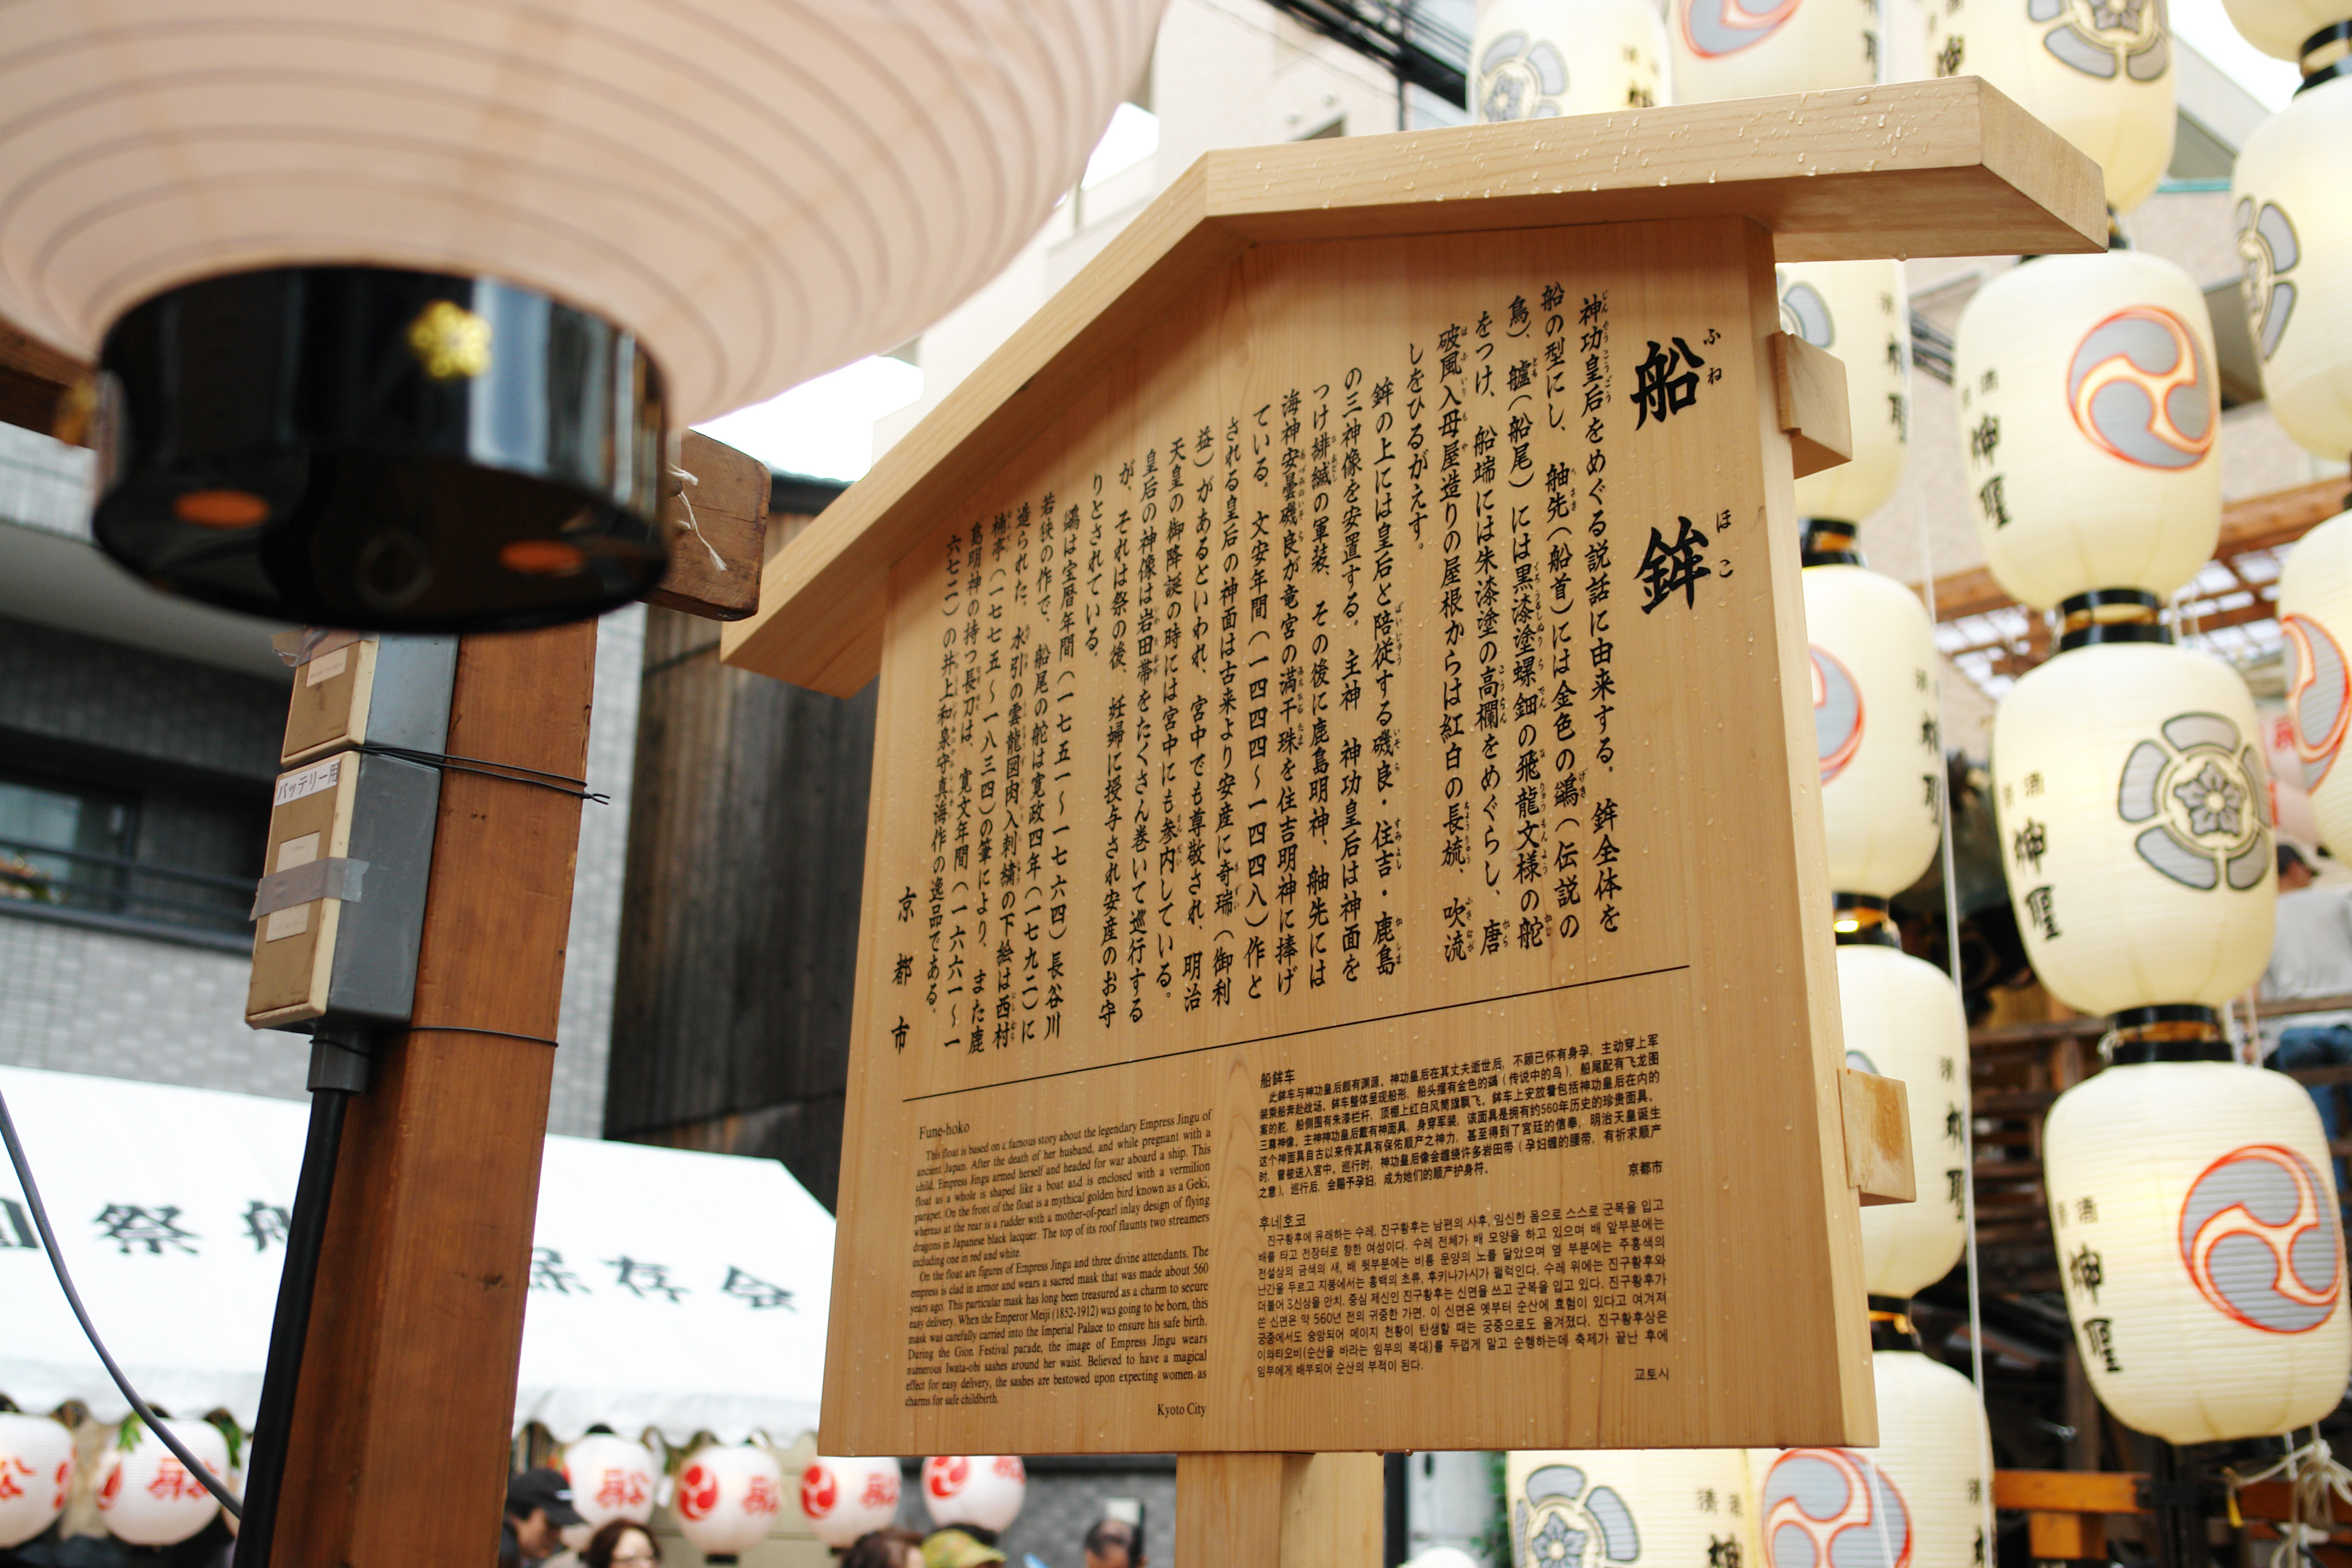 船鉾
ふね
ほこ
神功皇后をめぐる説話に由来する。鉾全体を
船の型にし、舳先(船首)には金色の鷁(伝説の
鳥)、艫(船尾)には黒漆塗螺鈿の飛龍文様の舵
をつけ、船端には朱漆塗の高欄をめぐらし、唐
破風入母屋造りの屋根からは紅白の長旒、吹流
しをひるがえす。
鉾の上には皇后と陪従する磯良・住吉・鹿島
の三神像を安置する。主神 神功皇后は神面を
つけ緋縅の軍装、その後に鹿島明神、舳先には
海神安曇磯良が竜宮の満干珠を住吉明神に捧げ
ている。文安年間(一四四四〜一四四八)作と
される皇后の神面は古来より安産に奇瑞(御利
益)があるといわれ、宮中でも尊敬され、明治
天皇の御降誕の時には宮中にも参内している。
皇后の神像は岩田帯をたくさん巻いて巡行する
が、それは祭の後、妊婦に授与され安産のお守
りとされている。
鷁は宝暦年間(一七五一〜一七六四)長谷川
若狭の作で、船尾の舵は寛政四年(一七九二)に
造られた。水引の雲龍図肉入刺繍の下絵は西村
楠亭(一七七五〜一八三四)の筆により、また鹿
島明神の持つ長刀は、寛文年間(一六六一〜一
六七二)の井上和泉守真海作の逸品である。
京都市
Fune-hoko
This float is based on a famous story about the legendary Empress Jingu of
ancient Japan. After the death of her husband, and while pregnant with a
child, Empress Jingu armed herself and headed for war aboard a ship. This
float as a whole is shaped like a boat and is enclosed with a vermilion
parapet. On the front of the float is a mythical golden bird known as a Geki,
whereas at the rear is a rudder with a mother-of-pearl inlay design of flying
dragons in Japanese black lacquer. The top of its roof flaunts two streamers
including one in red and white.
On the float are figures of Empress Jingu and three divine attendants. The
empress is clad in armor and wears a sacred mask that was made about 560
years ago. This particular mask has long been treasured as a charm to secure
easy delivery. When the Emperor Meiji (1852-1912) was going to be born, this
mask was carefully carried into the Imperial Palace to ensure his safe birth.
During the Gion Festival parade, the image of Empress Jingu wears
numerous Iwata-obi sashes around her waist. Believed to have a magical
effect for easy delivery, the sashes are bestowed upon expecting women as
charms for safe childbirth.
Kyoto City
船鉾车
此鉾车与神功皇后颇有渊源。神功皇后在其丈夫逝世后，不顾已怀有身孕，主动穿上军
装乘船奔赴战场。鉾车整体呈现船形，船头摆有金色的鷁（传说中的鸟），船尾配有飞龙图
案的舵，船侧围有朱漆栏杆，顶棚上红白风筒旗飘飞。鉾车上安放着包括神功皇后在内的
三尊神像。主神神功皇后戴有神面具，身穿军装，该面具是拥有约560年历史的珍贵面具。
这个神面具自古以来传其具有保佑顺产之神力，甚至得到了宫廷的信奉，明治天皇诞生
时，曾被送入宫中。巡行时，神功皇后像会缠绕许多岩田带（孕妇缠的腰带，有祈求顺产
之意），巡行后，会赐予孕妇，成为她们的顺产护身符。
京都市
후네호코
진구황후에 유래하는 수레. 진구황후는 남편의 사후, 임신한 몸으로 스스로 군복을 입고
배를 타고 전장터로 향한 여성이다. 수레 전체가 배 모양을 하고 있으며 배 앞부분에는
전설상의 금색의 새, 배 뒷부분에는 비룡 문양의 노를 달았으며 옆 부분에는 주홍색의
난간을 두르고 지붕에서는 홍백의 초류, 후키나가시가 펄럭인다. 수레 위에는 진구황후와
더불어 3신상을 안치. 중심 제신인 진구황후는 신면을 쓰고 군복을 입고 있다. 진구황후가
쓴 신면은 약 560년 전의 귀중한 가면. 이 신면은 옛부터 순산에 효험이 있다고 여겨져
궁중에서도 숭앙되어 메이지 천황이 탄생할 때는 궁중으로도 옮겨졌다. 진구황후상은
이와타오비(순산을 바라는 임부의 복대)를 두껍게 말고 순행하는데 축제가 끝난 후에
임부에게 배부되어 순산의 부적이 된다.
교토시
バッテリー用
祭船
保存会